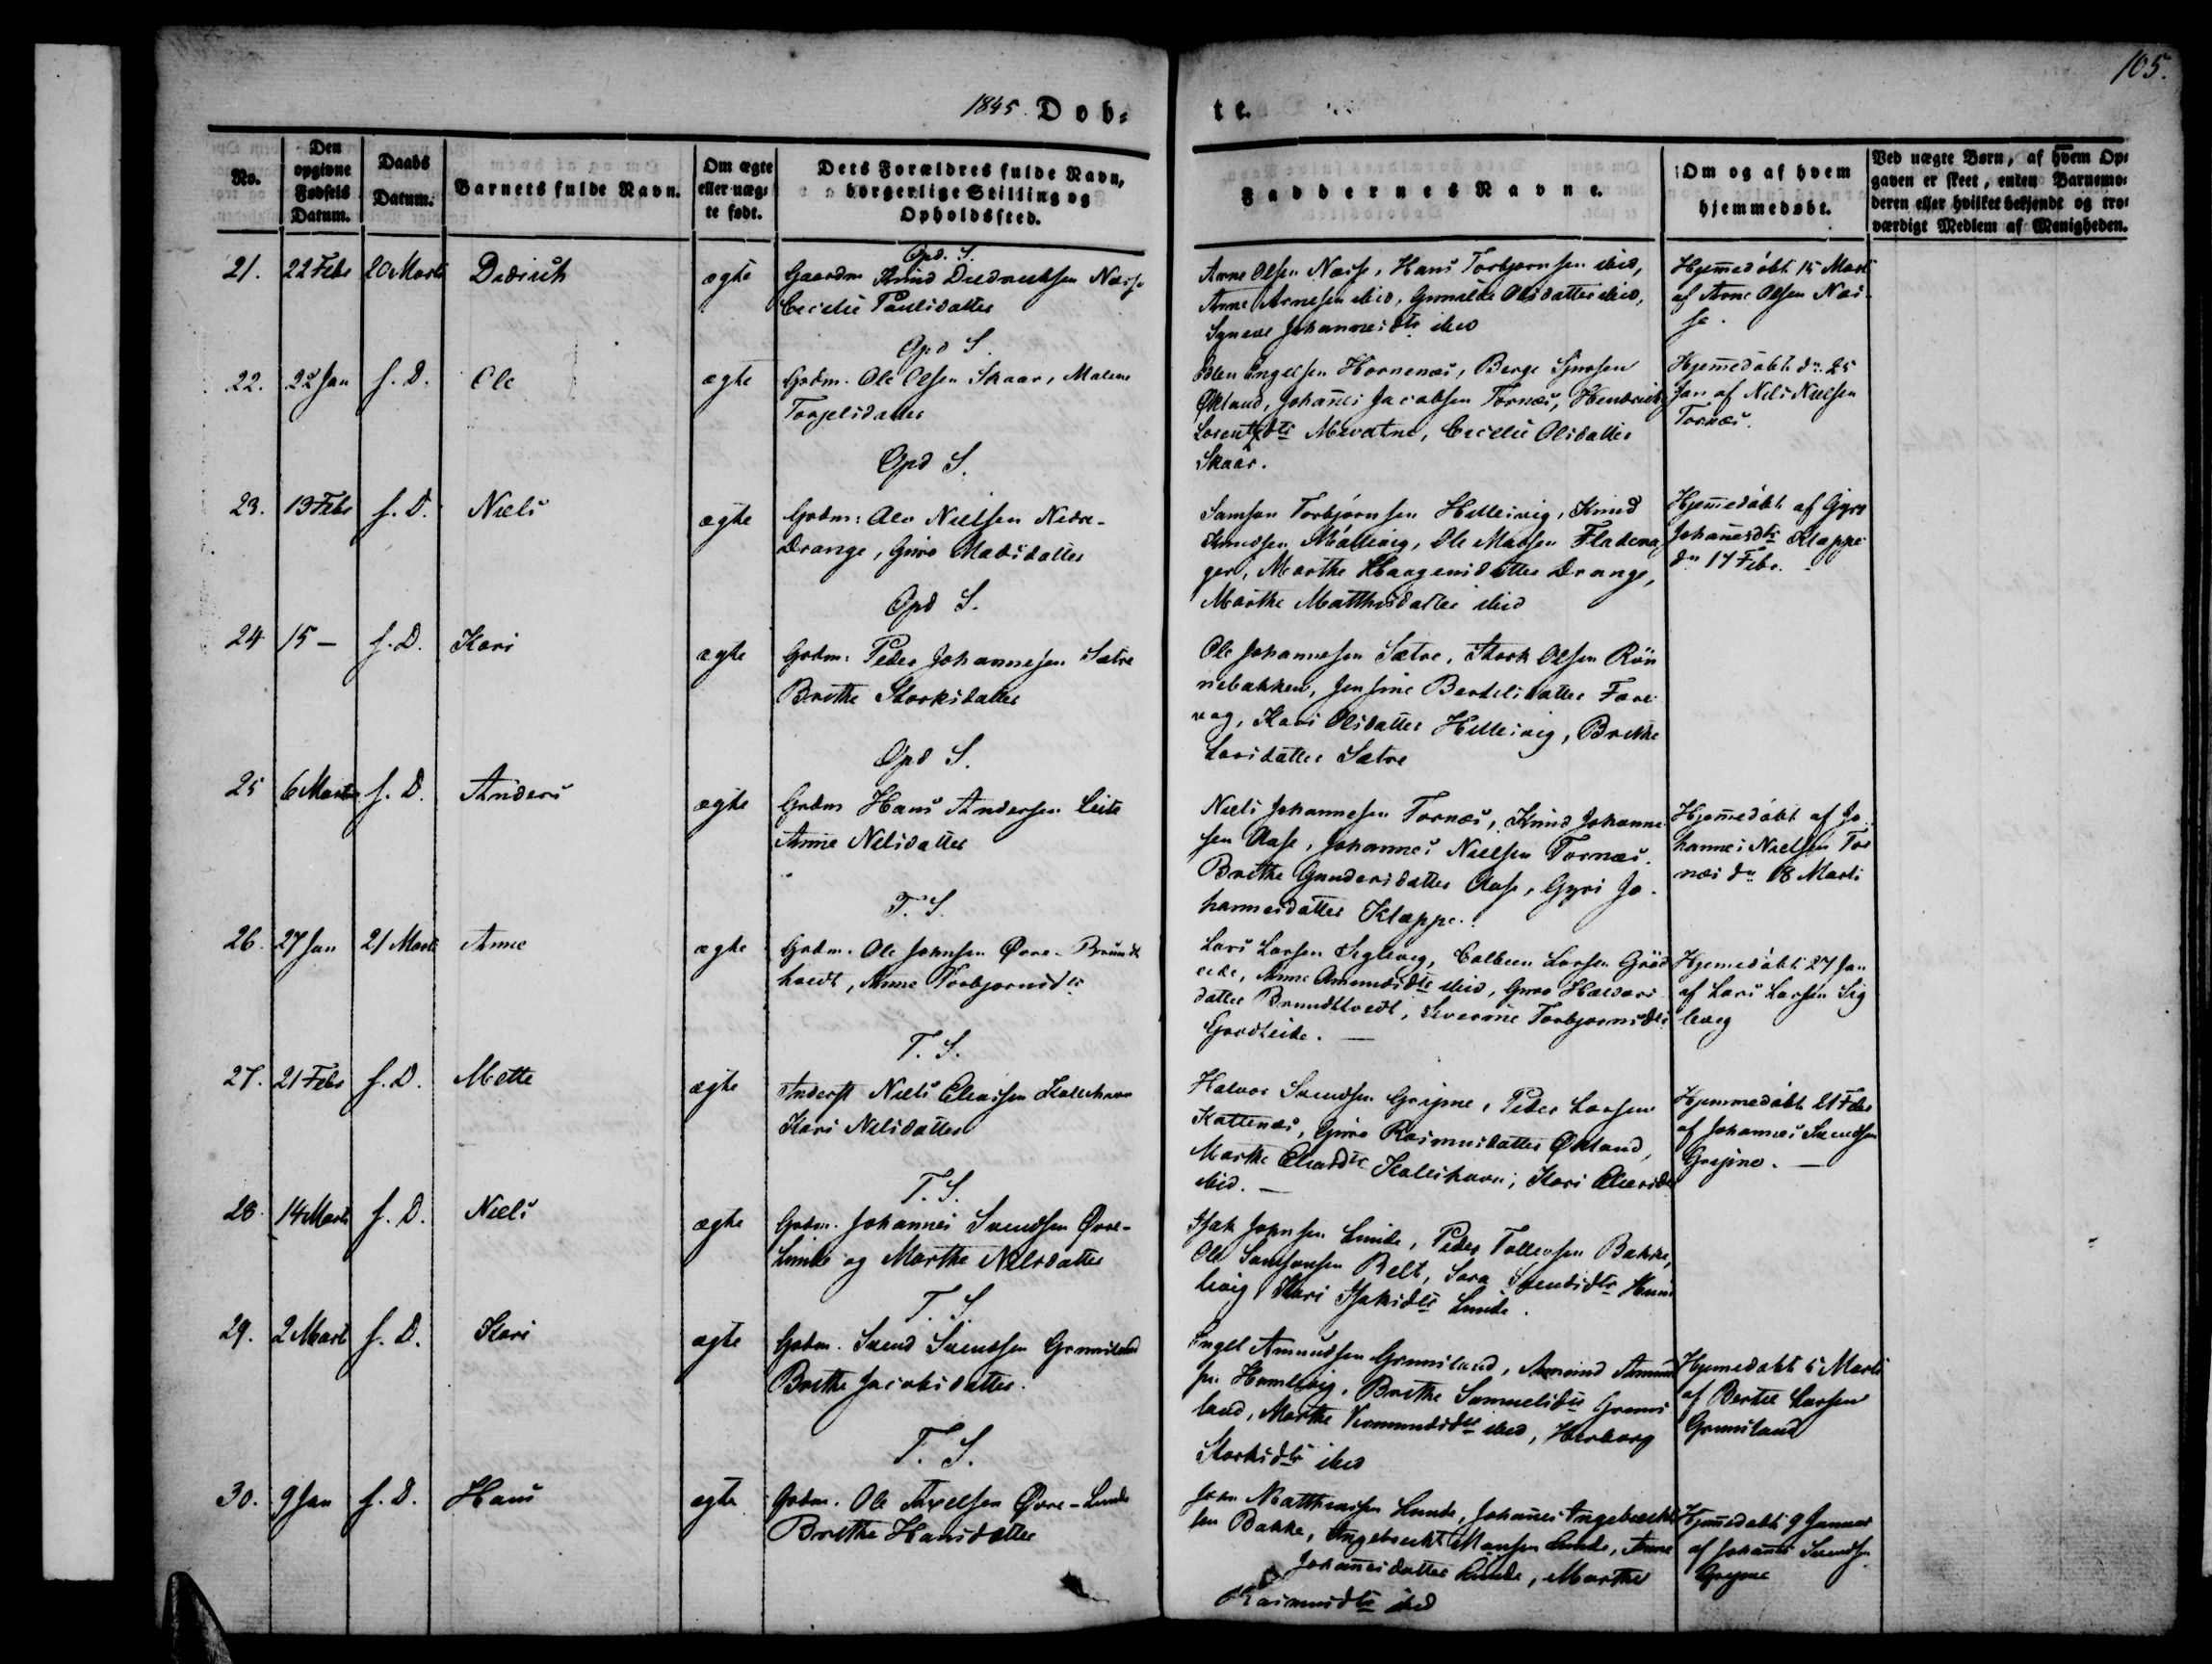 105.
1845. Døb-
te.
No.
Den
opgivne
Fødsels
Datum.
Daabs
Datum.
Barnets fulde Navn.
Om ægte
eller uæg-
te født.
Dets Forældres fulde Navn,
borgerlige Stilling og
Opholdssted.
Faddernes Navne.
Om og af hvem
hjemmedøbt.
Ved uægte Børn, af hvem Op-
gaven er skeet, enten Barnemo-
deren eller hvilket bekjendt og tro-
værdigt Medlem af Menigheden.
Opd. S.
21. 22 Febr 20 Marti Didrich ægte
Gaardm Knud Diedrichsen Næsse
Cecilie Paulsdatter
Arne Olsen Næsse, Hans Torbjørnsen ibid,
Arne Arnesen ibid, Gunnilde Olsdatter ibid,
Synneve Johannesdtr ibid
Hjemedøbt 15 Marti
af Arne Olsen Næs-
se.
Opd S.
22. 22 Jan s. D. Ole ægte
Grdm. Ole Olsen Skaar, Malene
Torgelsdatter
Engelsen Hornenæs, Berge
Økland, Johanes Jacobsen Tornæs,
Cecilie Olsdatter
Skaar.
Hjemedøbt dn 25
Jan af Nils Nielsen
Tornæs.
Opd S.
23. 13 Febr s. D. Niels ægte
Grdm: Ole Nielsen Nedre-
Drange, Guro Madsdatter
Samson Torbjørnsen Hellesvig, Knud
Knudsen, Ole Madsen Fladena-
ger, Marthe Haagensdatter Drange,
Marthe Matthisdatter ibid
Hjemedøbt af Gyro
Johanesdtr Klæppe
dn 17 Febr.
Opd S.
24 15 — s. D. Kari ægte
Grdm: Peder Johannesen Sætre
Brithe Storksdatter
Ole Johannesen Sætre, Stork Olsen Røn
nebakken, Jensine Bardelsdatter Fare
vag, Kari Olsdatter Hellesvig, Brithe
Larsdatter Sætre
Opd S.
25 6 Marti s. D. Anders ægte
Grdm Hans Andersen Leite
Anne Nilsdatter
Niels Johannesen Tornæs, Knud Johanne
sen Aase, Johannes Nielsen Tornæs.
Brithe Gundersdatter Aase, Gyri Jo-
hannesdatter Klæppe.
Hjemedøbt af Jo-
hannes Nielsen Tor
næs dn 18 Marti
T. S.
26. 27 Jan 21 Marti Anne ægte
Grdm. Ole Johnsen Øvre-Brundt
hvedt, Anne Torbjørnsdtr
Lars Larsen Siglevig, Larsen
Anne Amundsdtr ibid, Guro Halvors
datter Brundthvedt, Severine Torbjørnsdtr
Hjemedøbt 27 Jan
af Lars Larsen Sig
levig
T. S.
27. 21 Febr s. D. Mette ægte
Inderst Niels Eliassen Kaleshavn
Kari Nilsdatter
Halvor Svendsen Greipne, Peder Larsen
Kattenæs, Guro Rasmusdatter Økland,
Marthe Eliasdtr Kaleshavn, Kari Eliasdtr
ibid. —
Hjemmedøbt 21 Febr
af Johannes Svendsen
Greipne. —
T. S.
28. 14 Marti s. D. Niels ægte
Grdm. Johannes Svendsen Øvre-
Lunde og Marthe Nilsdatter
Isak Johnsen Lunde, Peder Tollevsen Bakke,
Ole Samsonsen Belt, Sara Svendsdtr Hum
levig, Kari Isaksdtr Lunde.
T. S.
29. 2 Marti s. D. Kari ægte
Grdm. Svend Svendsen Grønsland
Brithe Jacobsdatter.
Engel Amundsen Grønsland, Amund Amund
sen Humlevig, Brithe Samuelsdtr Grøns
land, Marthe Vermundsdtr ibid, Herborg
Storksdtr ibid
Hjemedøbt 5 Marti
af Bertel Larsen
Grønsland
T. S.
30. 9 Jan s. D. Hans ægte
Grdm. Ole Axelsen Øvre-Lunde
Brithe Hansdatter
Matthiassen Lunde, Johanes Ingebrecht
sen Bakke, Ingebrecht Monsen Lunde, Anne
Johanesdatter Lunde, Marthe
Rasmusdtr ibid
Hjemedøbt 9 Januar
af Johanes Svendsen
Greipne